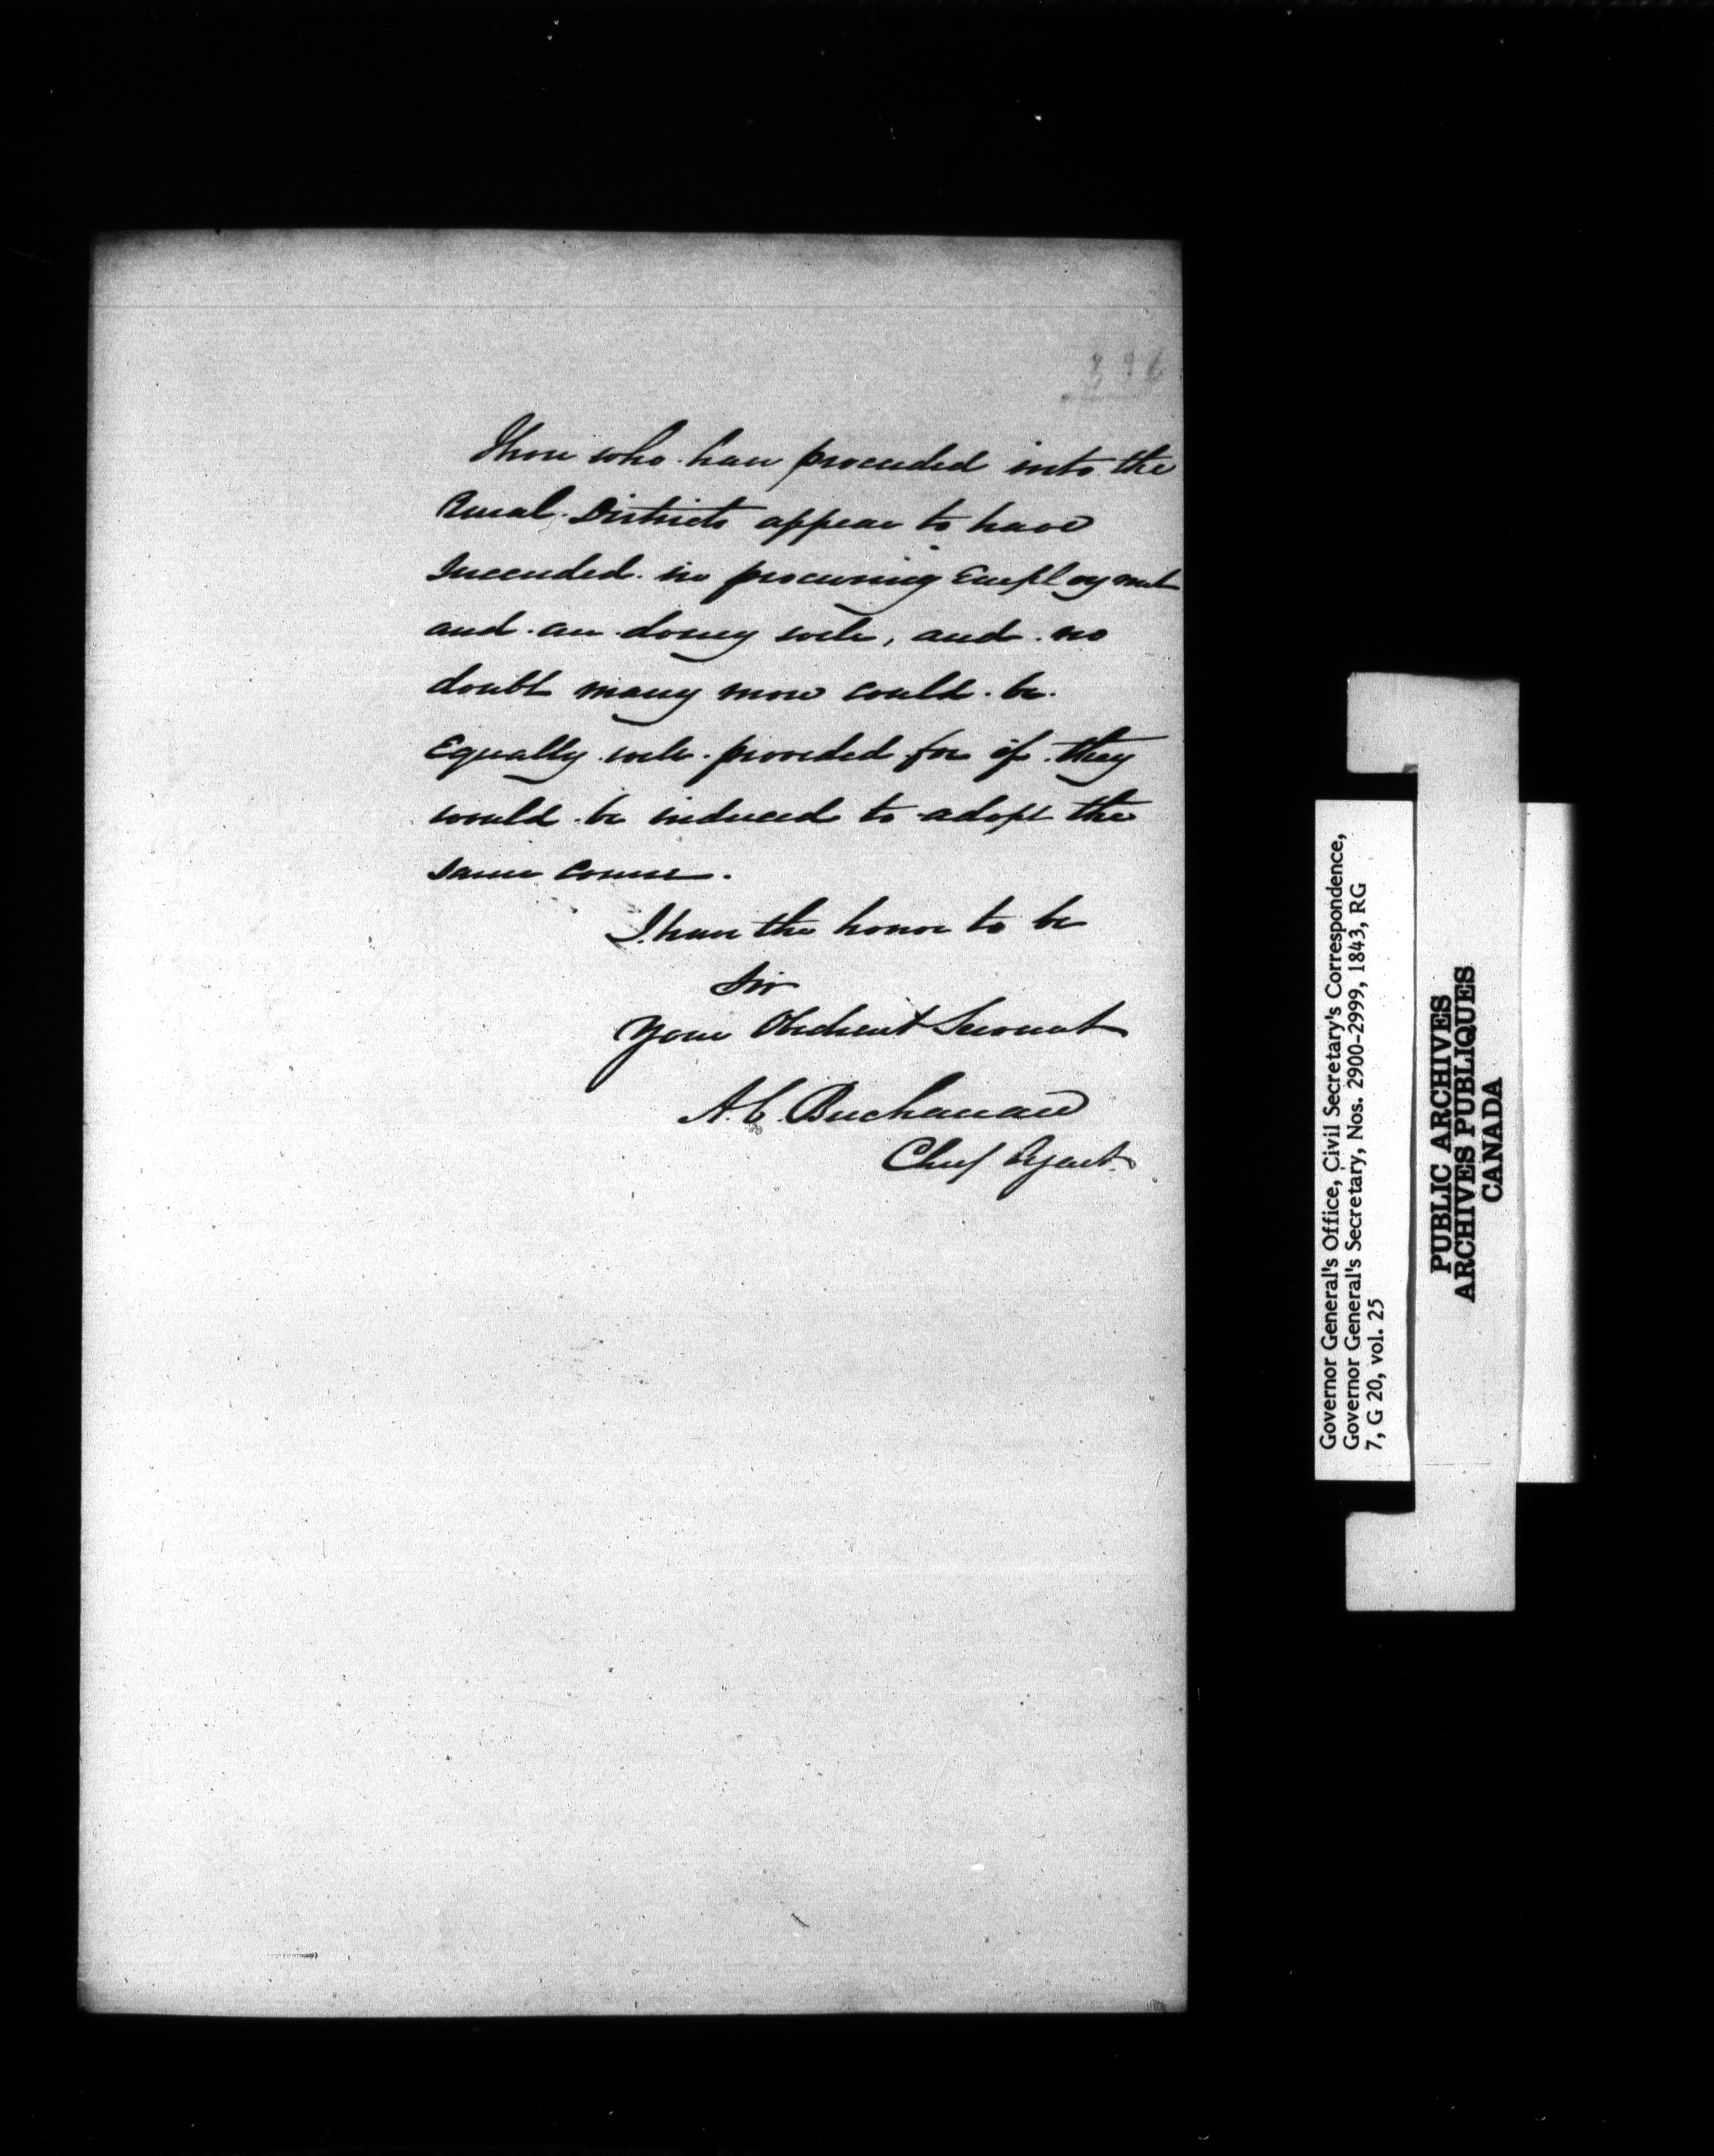 396
Those who have proceeded into the
Rural Districts appear to have
Succeeded in procuring Employment
and are doing well, and no
doubt many more could be
Equally well provided for if they
would be induced to adopt the
same course.
I have the honor to be
Sir
Your Obedient Servant
A. C. Buchanan
Chief Agent.
Governor General's Office, Civil Secretary's Correspondence,
Governor General's Secretary, Nos. 2900-2999, 1843, RG
7, G 20, vol. 25
PUBLIC ARCHIVES
ARCHIVES PUBLIQUES
CANADA